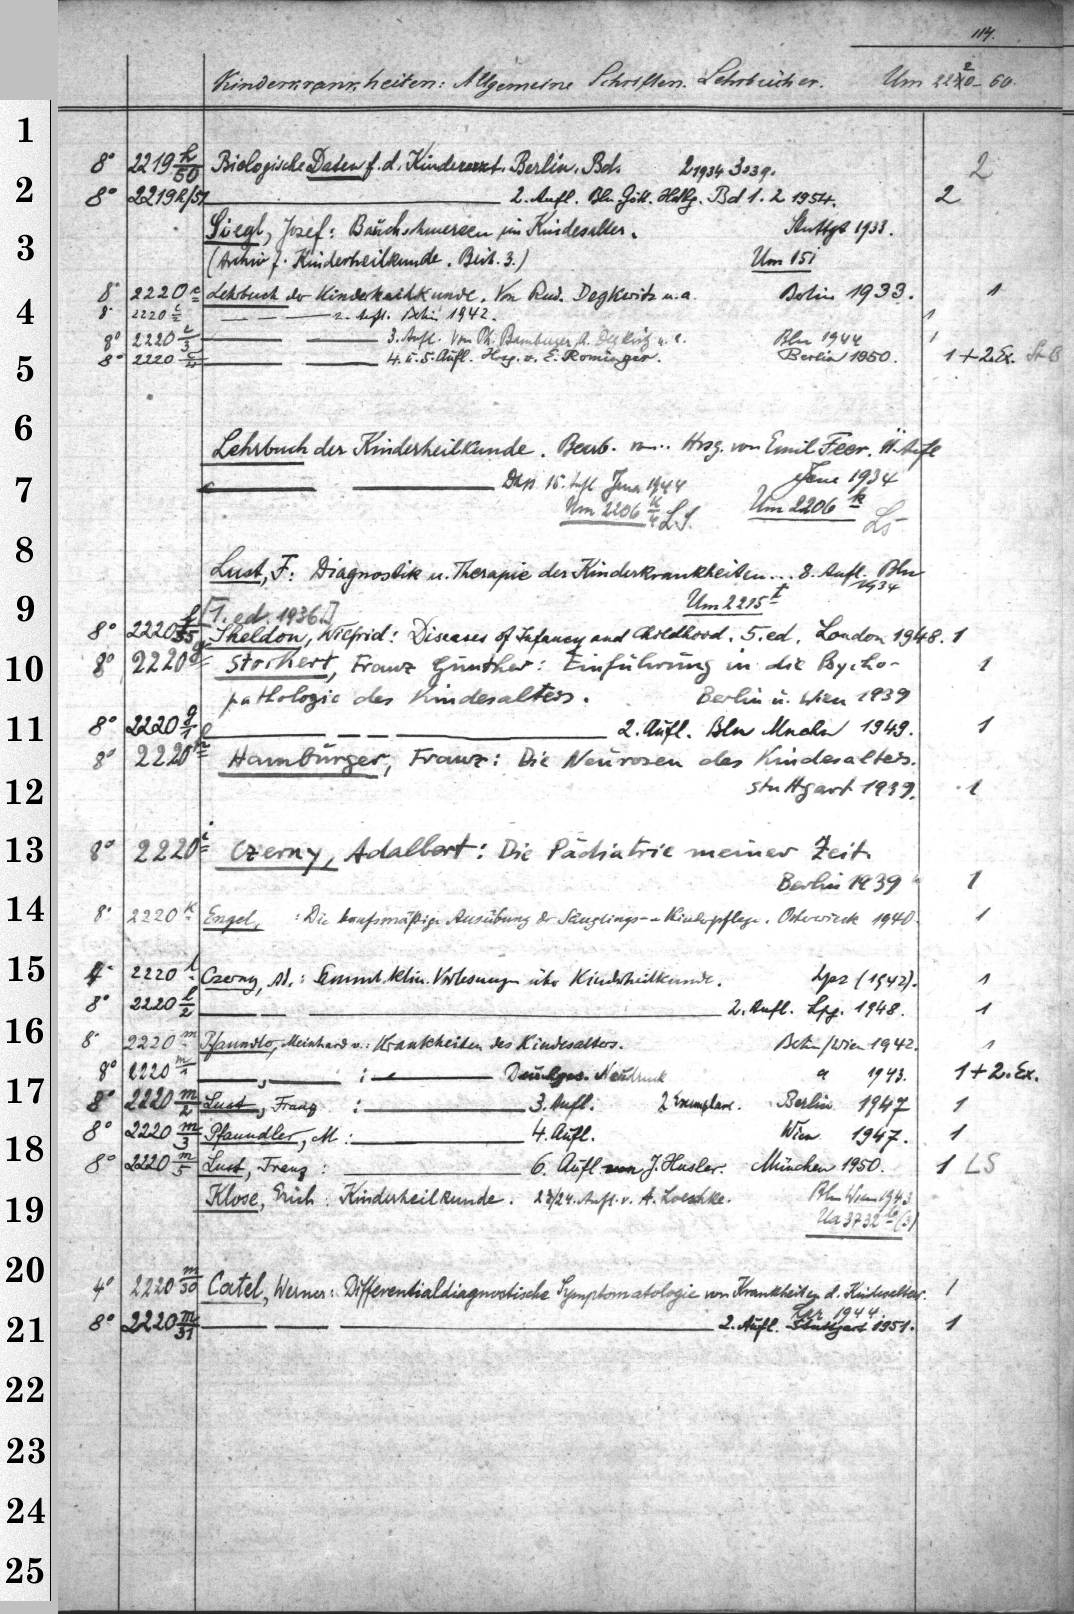 114.
Kinderkrankheiten: Allgemeine Schriften. Lehrbücher. Um 2220-60.
1
8° 2219 h/50 Biologische Daten f. d. Kinderarzt. Berlin. Bd. 2 1934 3.39. 2
2
8° 2219 h/51 2. Aufl. Bln Gött. Hdlbg. Bd 1. 2 1954. 2
Siegl, Josef: Bauchschmerzen im Kindesalter. Stuttgt 1933.
3
(Archiv f. Kinderheilkunde. Beih. 3.) Um 151
8° 2220 c Lehrbuch der Kinderheilkunde. Von Rud. Degkwitz u. a. Berlin 1933. 1
4
8° 2220 c/2 2. Aufl. Berlin 1942. 1
8° 2220 c/3 3. Aufl. Von Ph. Bamberger, R. Degkwitz u. a. Bln 1944 1
8° 2220 4. u. 5. Aufl. Hrsg. v. E. Rominger. Berlin 1950. 1 + 2. Ex. St B
5
6
Lehrbuch der Kinderheilkunde. Bearb. von.. Hrsg. von Emil Feer. 11. Aufl
Jena 1934
7
Dass. 15. Aufl Jena 1944
Um 2206 k/4 LS. Um 2206 k LS
8
Lust, F.: Diagnostik u. Therapie der Kinderkrankheiten... 8. Aufl. Bln
1934
Um 2215 t
9
[1. ed. 1936.]
8° 2220 f/35 Sheldon, Wilfrid: Diseases of Infancy and Childhood. 5. ed. London 1948. 1
10
8° 2220 g Stockert, Franz Günther: Einführung in die Psycho-
pathologie des Kindesalters. Berlin u. Wien 1939 1
11
8° 2220 g/1 2. Aufl. Bln Mnchn 1949. 1
8° 2220 h Hamburger, Franz: Die Neurosen des Kindesalters.
12
Stuttgart 1939. 1
13
8° 2220 i Czerny, Adalbert: Die Pädiatrie meiner Zeit.
Berlin 1939 1
14
8° 2220 k Engel, : Die berufsmäßige Ausübung der Säuglings- u Kinderpflege. Osterwieck 1940. 1
15
2220 l Czerny, Ad.: Samml. klin. Vorlesungen über Kinderheilkunde. Lpz (1942). 1
8° 2220 l/2 2. Aufl. Lpg. 1948. 1
16
8° 2220 m Pfaundler, Meinhard v.: Krankheiten des Kindesalters. Berlin/Wien 1942. 1
8° 2220 m/1 , : Neudruck " 1943. 1 + 2. Ex.
17
8° 2220 m/2 Lust, Franz : 3. Aufl. 2 Exemplare. Berlin 1947 1
8° 2220 m/3 Pfaundler, M : 4. Aufl. Wien 1947. 1
18
8° 2220 m/5 Lust, Franz : 6. Aufl. von J. Husler. München 1950. 1 LS
Klose, Erich: Kinderheilkunde. 23/24. Aufl. v. A. Loeschke. Bln Wien 1943
19
Ua 3732 (3)
20
4° 2220 m/30 Catel, Werner: Differentialdiagnostische Symptomatologie von Krankheiten d. Kindesalter. 1
Lpz 1944.
21
8° 2220 m/31 2. Aufl. Stuttgart 1951. 1
22
23
24
25